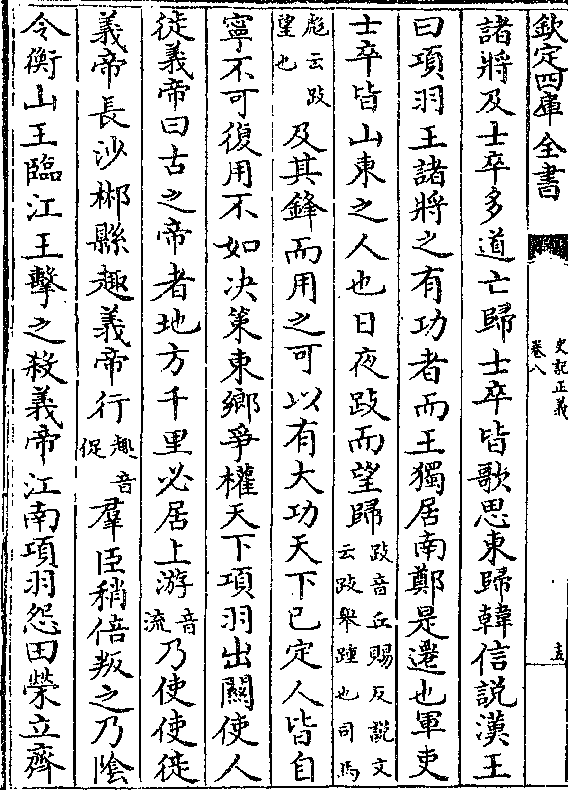 欽定四庫全書
史記正義
卷八
五
諸將及士卒多道亡歸士卒皆歌思東歸韓信説漢王
曰項羽王諸將之有功者而王獨居南鄭是遷也軍吏
士卒皆山東之人也日夜跂而望歸跂音丘賜反説文云跂舉踵也司馬
彪云跂望也及其鋒而用之可以有大功天下已定人皆自
寧不可復用不如决策東鄉爭權天下項羽出關使人
徙義帝曰古之帝者地方千里必居上游音流乃使使徙
義帝長沙郴縣趣義帝行趣音促羣臣稍倍叛之乃隂
令衡山王臨江王擊之殺義帝江南項羽怨田榮立齊